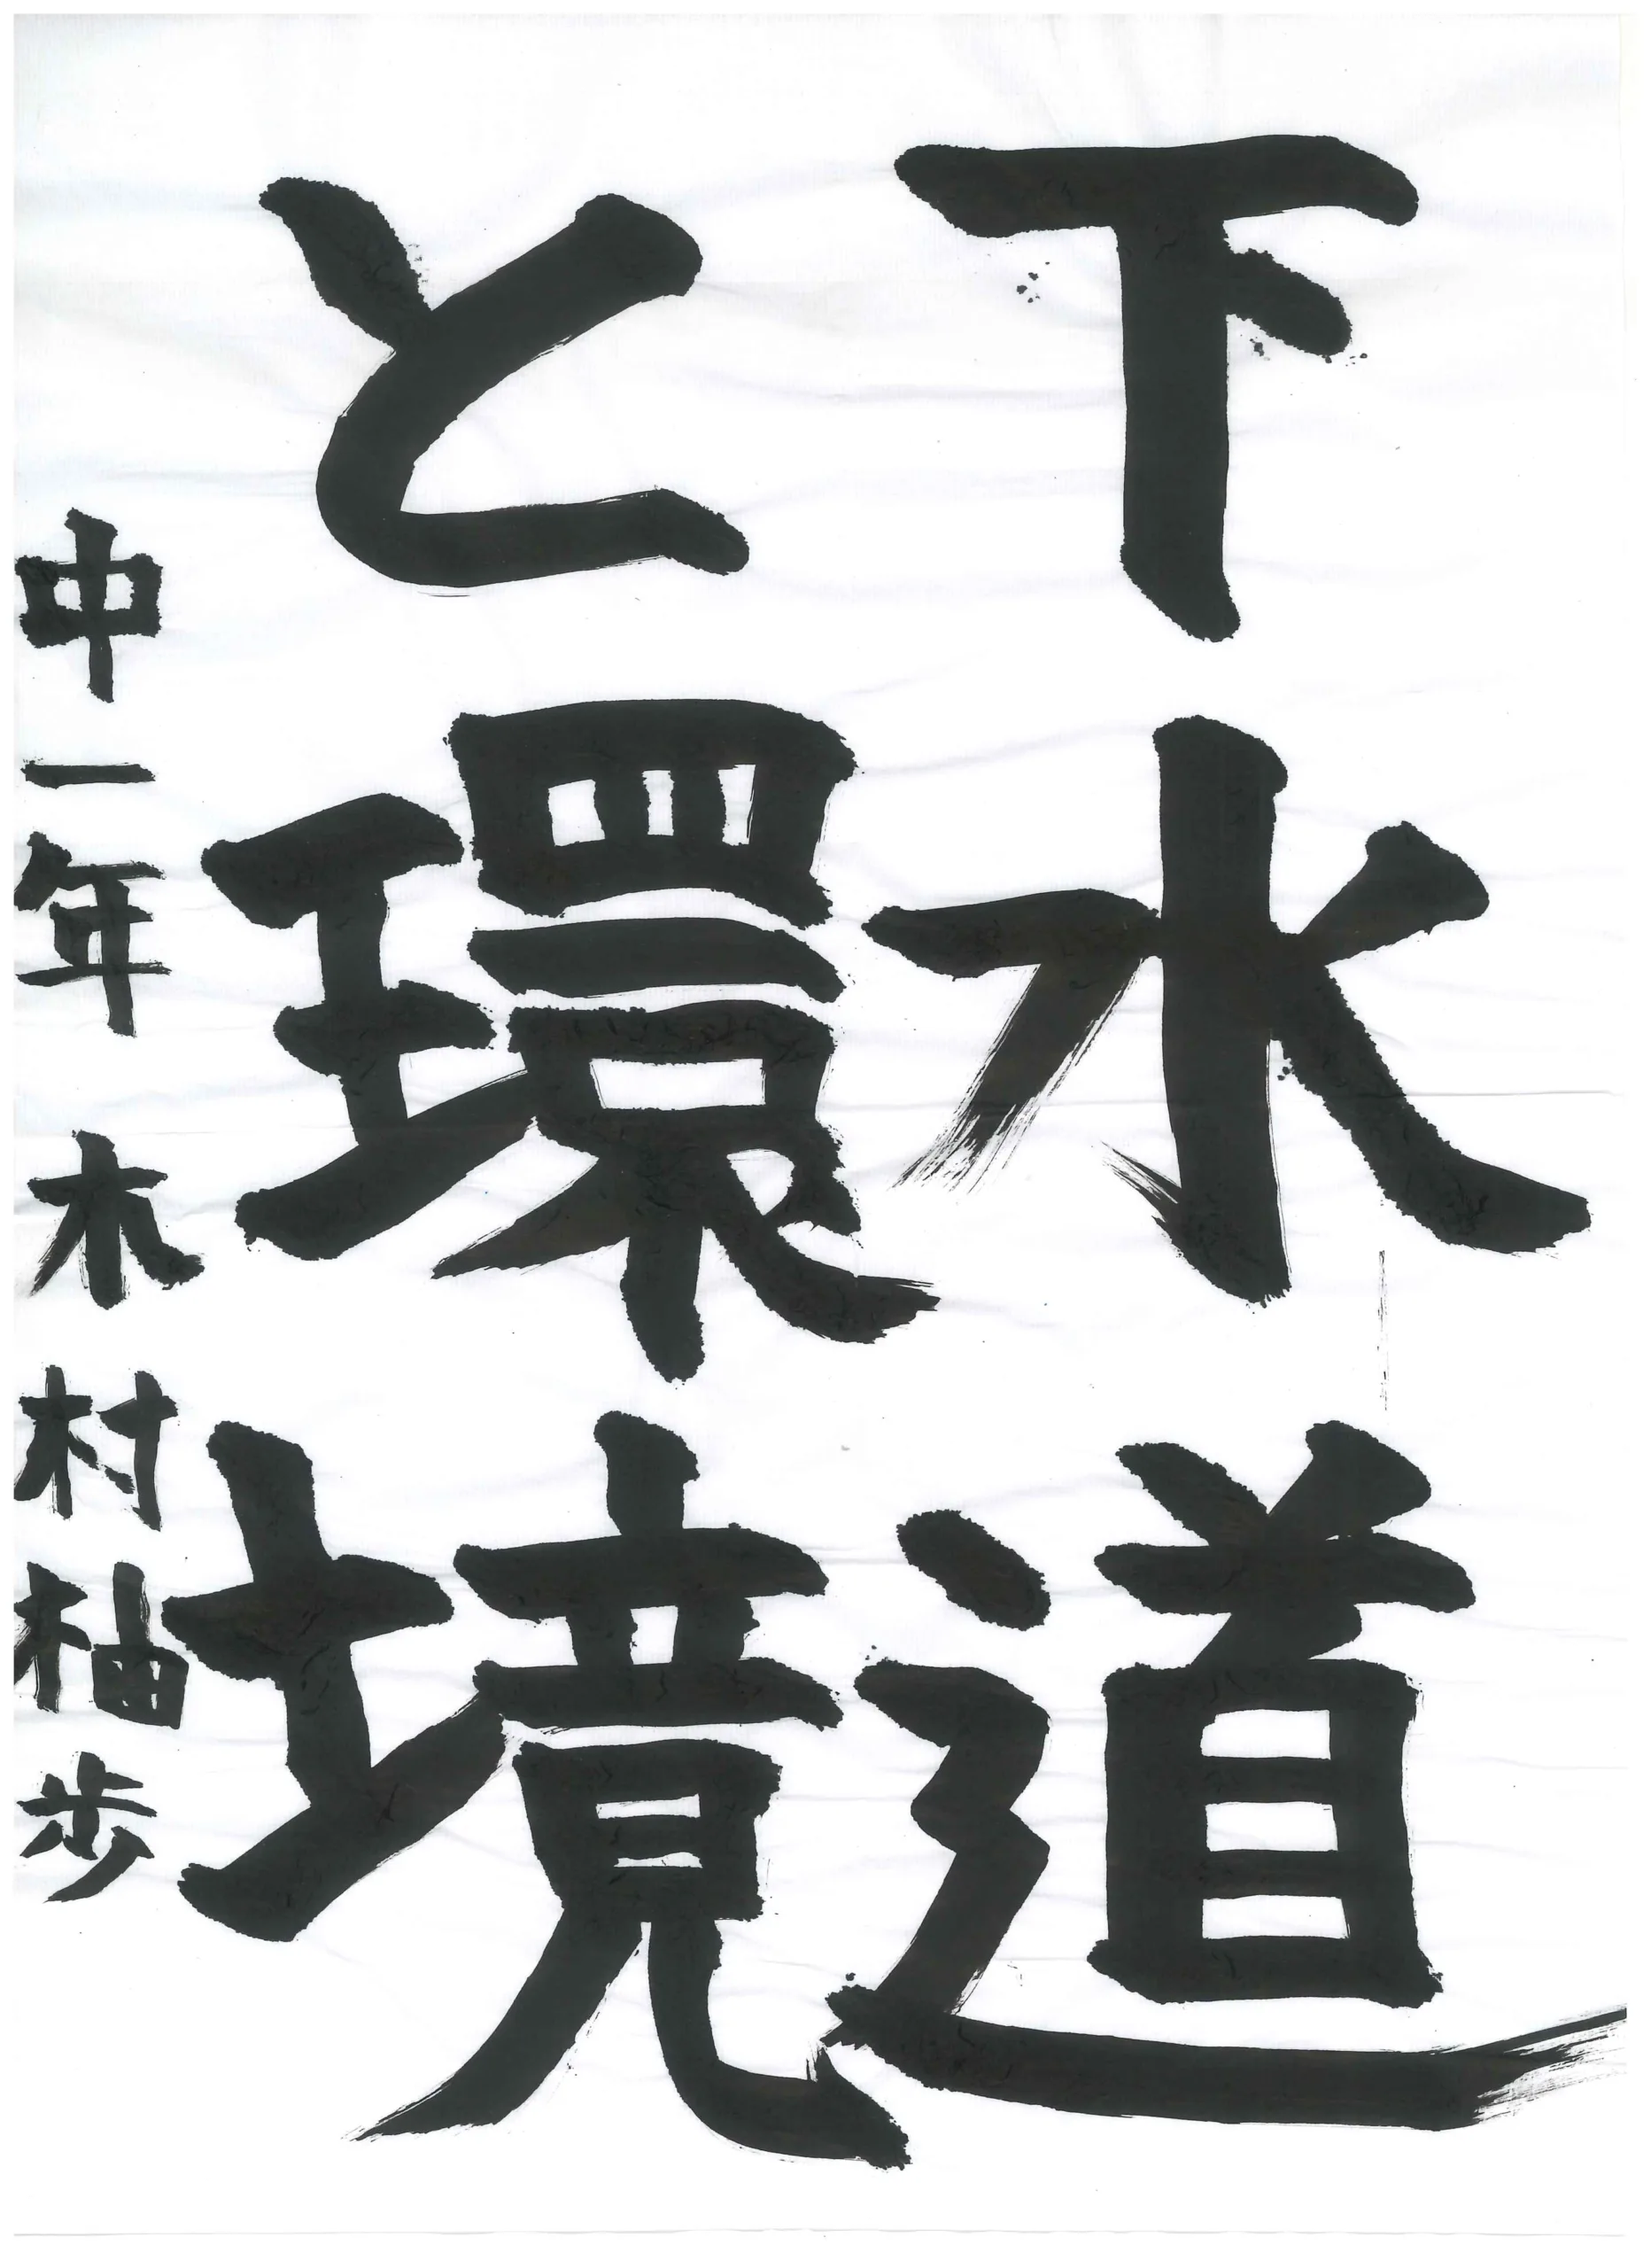 下水道
と環境
中一年 木村柚歩